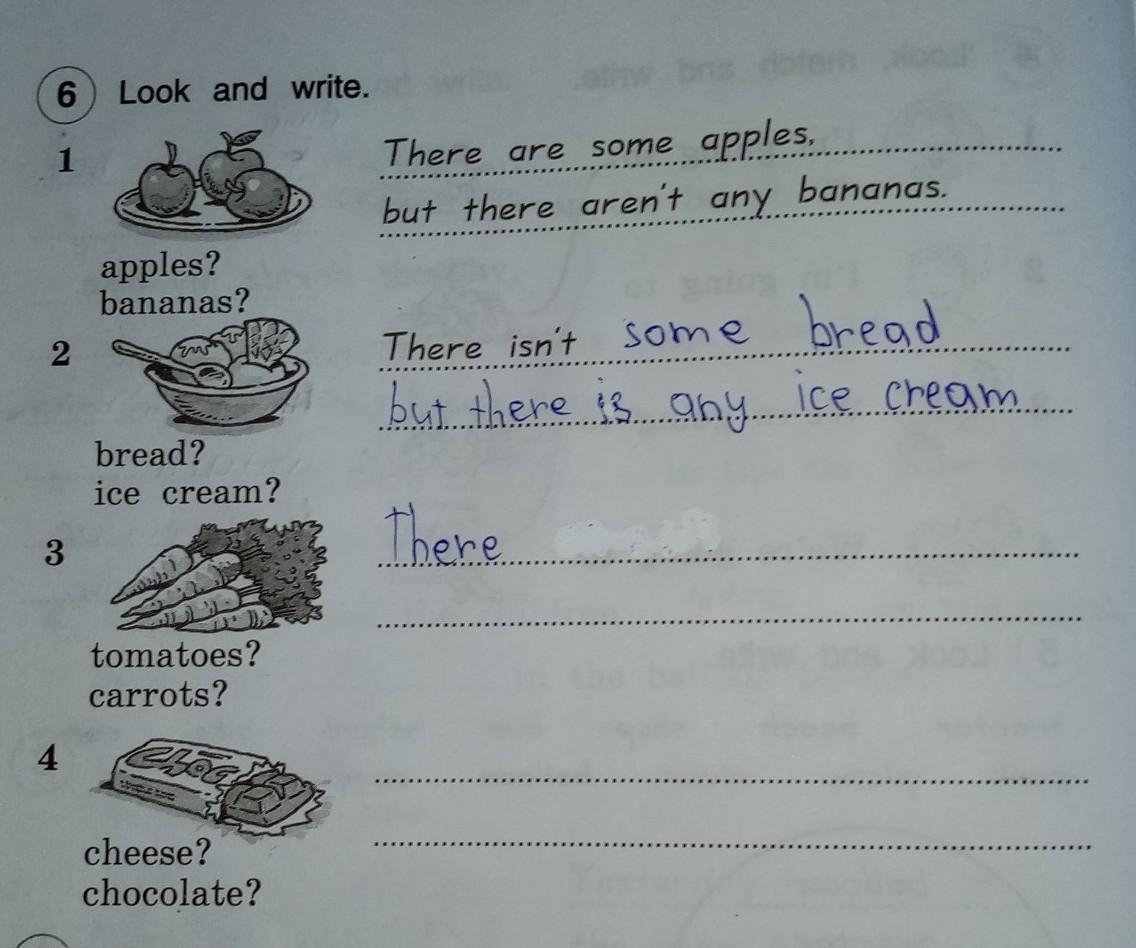 6 Look and write.
1 There are some apples,
but there aren't any bananas.
apples?
bananas?
2 There isn't some bread
but there is any ice cream
bread?
ice cream?
3 There
tomatoes?
carrots?
4 CHOC
cheese?
chocolate?